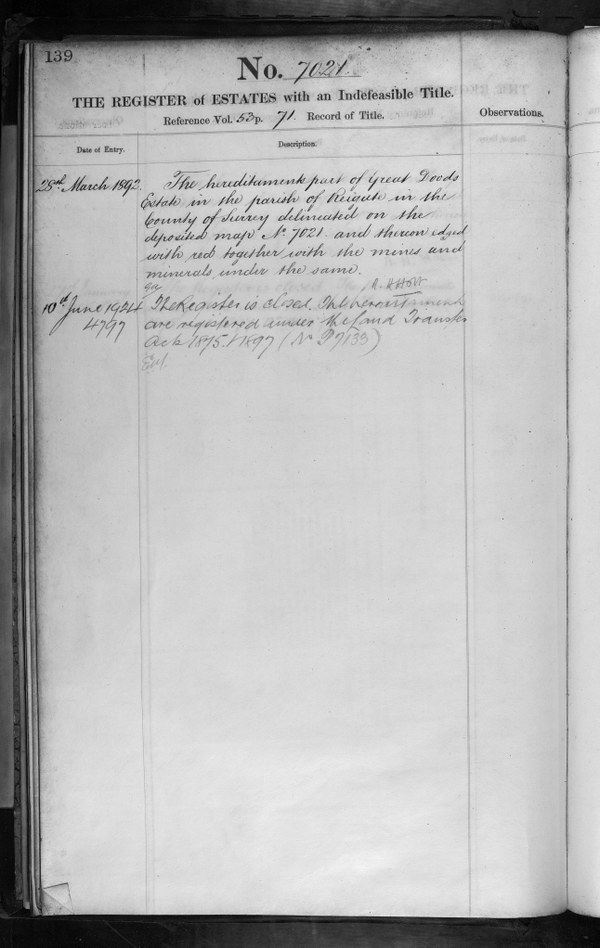 139
No. 7021.
THE REGISTER of ESTATES with an Indefeasible Title.
Reference Vol. 53 p. 71. Record of Title.
Observations.
Date of Entry.
Description.
28th March 1892.
The hereditaments part of Great Doods
Estate in the parish of Reigate in the
County of Surrey delineated on the
deposited map No. 7021. and thereon edged
with red together with the mines and
minerals under the same.
10th June 1924
The Register is closed. The hereditaments
4797
are registered under the Land Transfer
Acts 1875 & 1897 (No P7133)